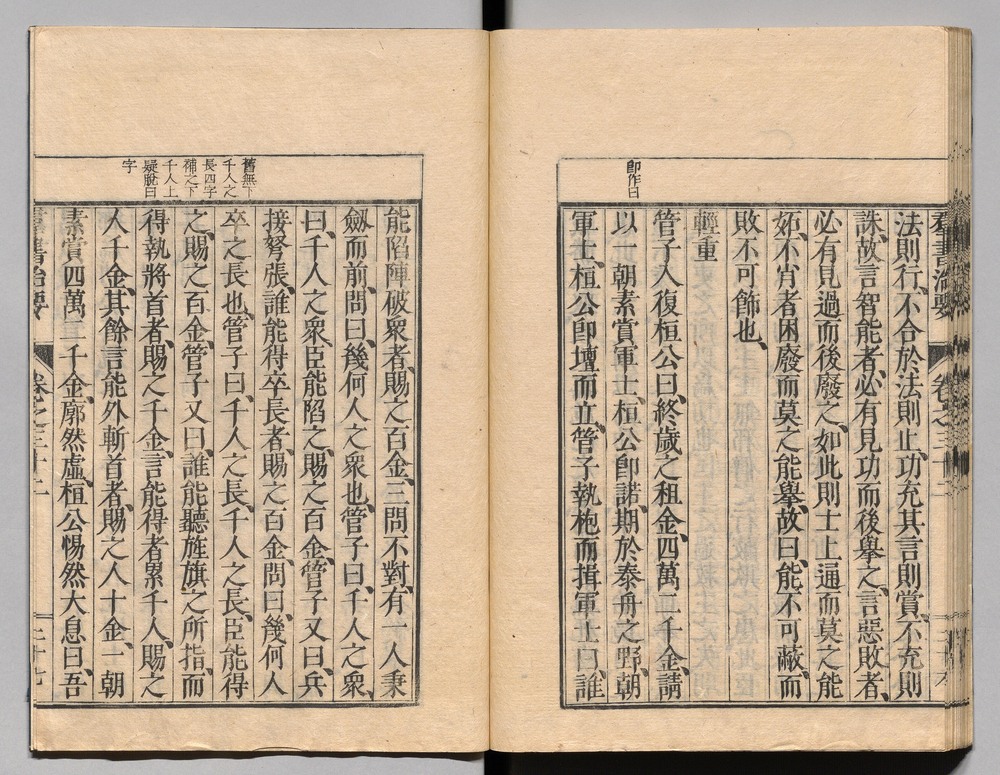 羣書治要 卷之三十二
卽作曰
法則行、不合於法則止、功充其言則賞、不充則
誅、故言智能者、必有見功而後舉之、言惡敗者、
必有見過而後廢之、如此則士上通而莫之能
妬、不肖者困廢而莫之能舉、故曰、能不可蔽、而
敗不可飾也、
輕重
管子入復桓公曰、終歲之租金、四萬二千金、請
以一朝素賞軍士、桓公卽諾、期於泰舟之野、朝
軍士、桓公卽壇而立、管子執枹而揖軍士曰、誰
舊無下
千人之
長四字
補之下
千人上
疑脫曰
字
能陷陣破衆者、賜之百金、三問不對、有一人秉
劔而前、問曰、幾何人之衆也、管子曰、千人之衆、
曰、千人之衆、臣能陷之、賜之百金、管子又曰、兵
接弩張、誰能得卒長者、賜之百金、問曰、幾何人
卒之長也、管子曰、千人之長、千人之長、臣能得
之、賜之百金、管子又曰、誰能聽旌旗之所指、而
得執將首者、賜之千金、言能得者累千人、賜之
人千金、其餘言能外斬首者、賜之人十金、一朝
素賞、四萬二千金、廓然虛、桓公惕然大息曰、吾
羣書治要 卷之三十二 二十七